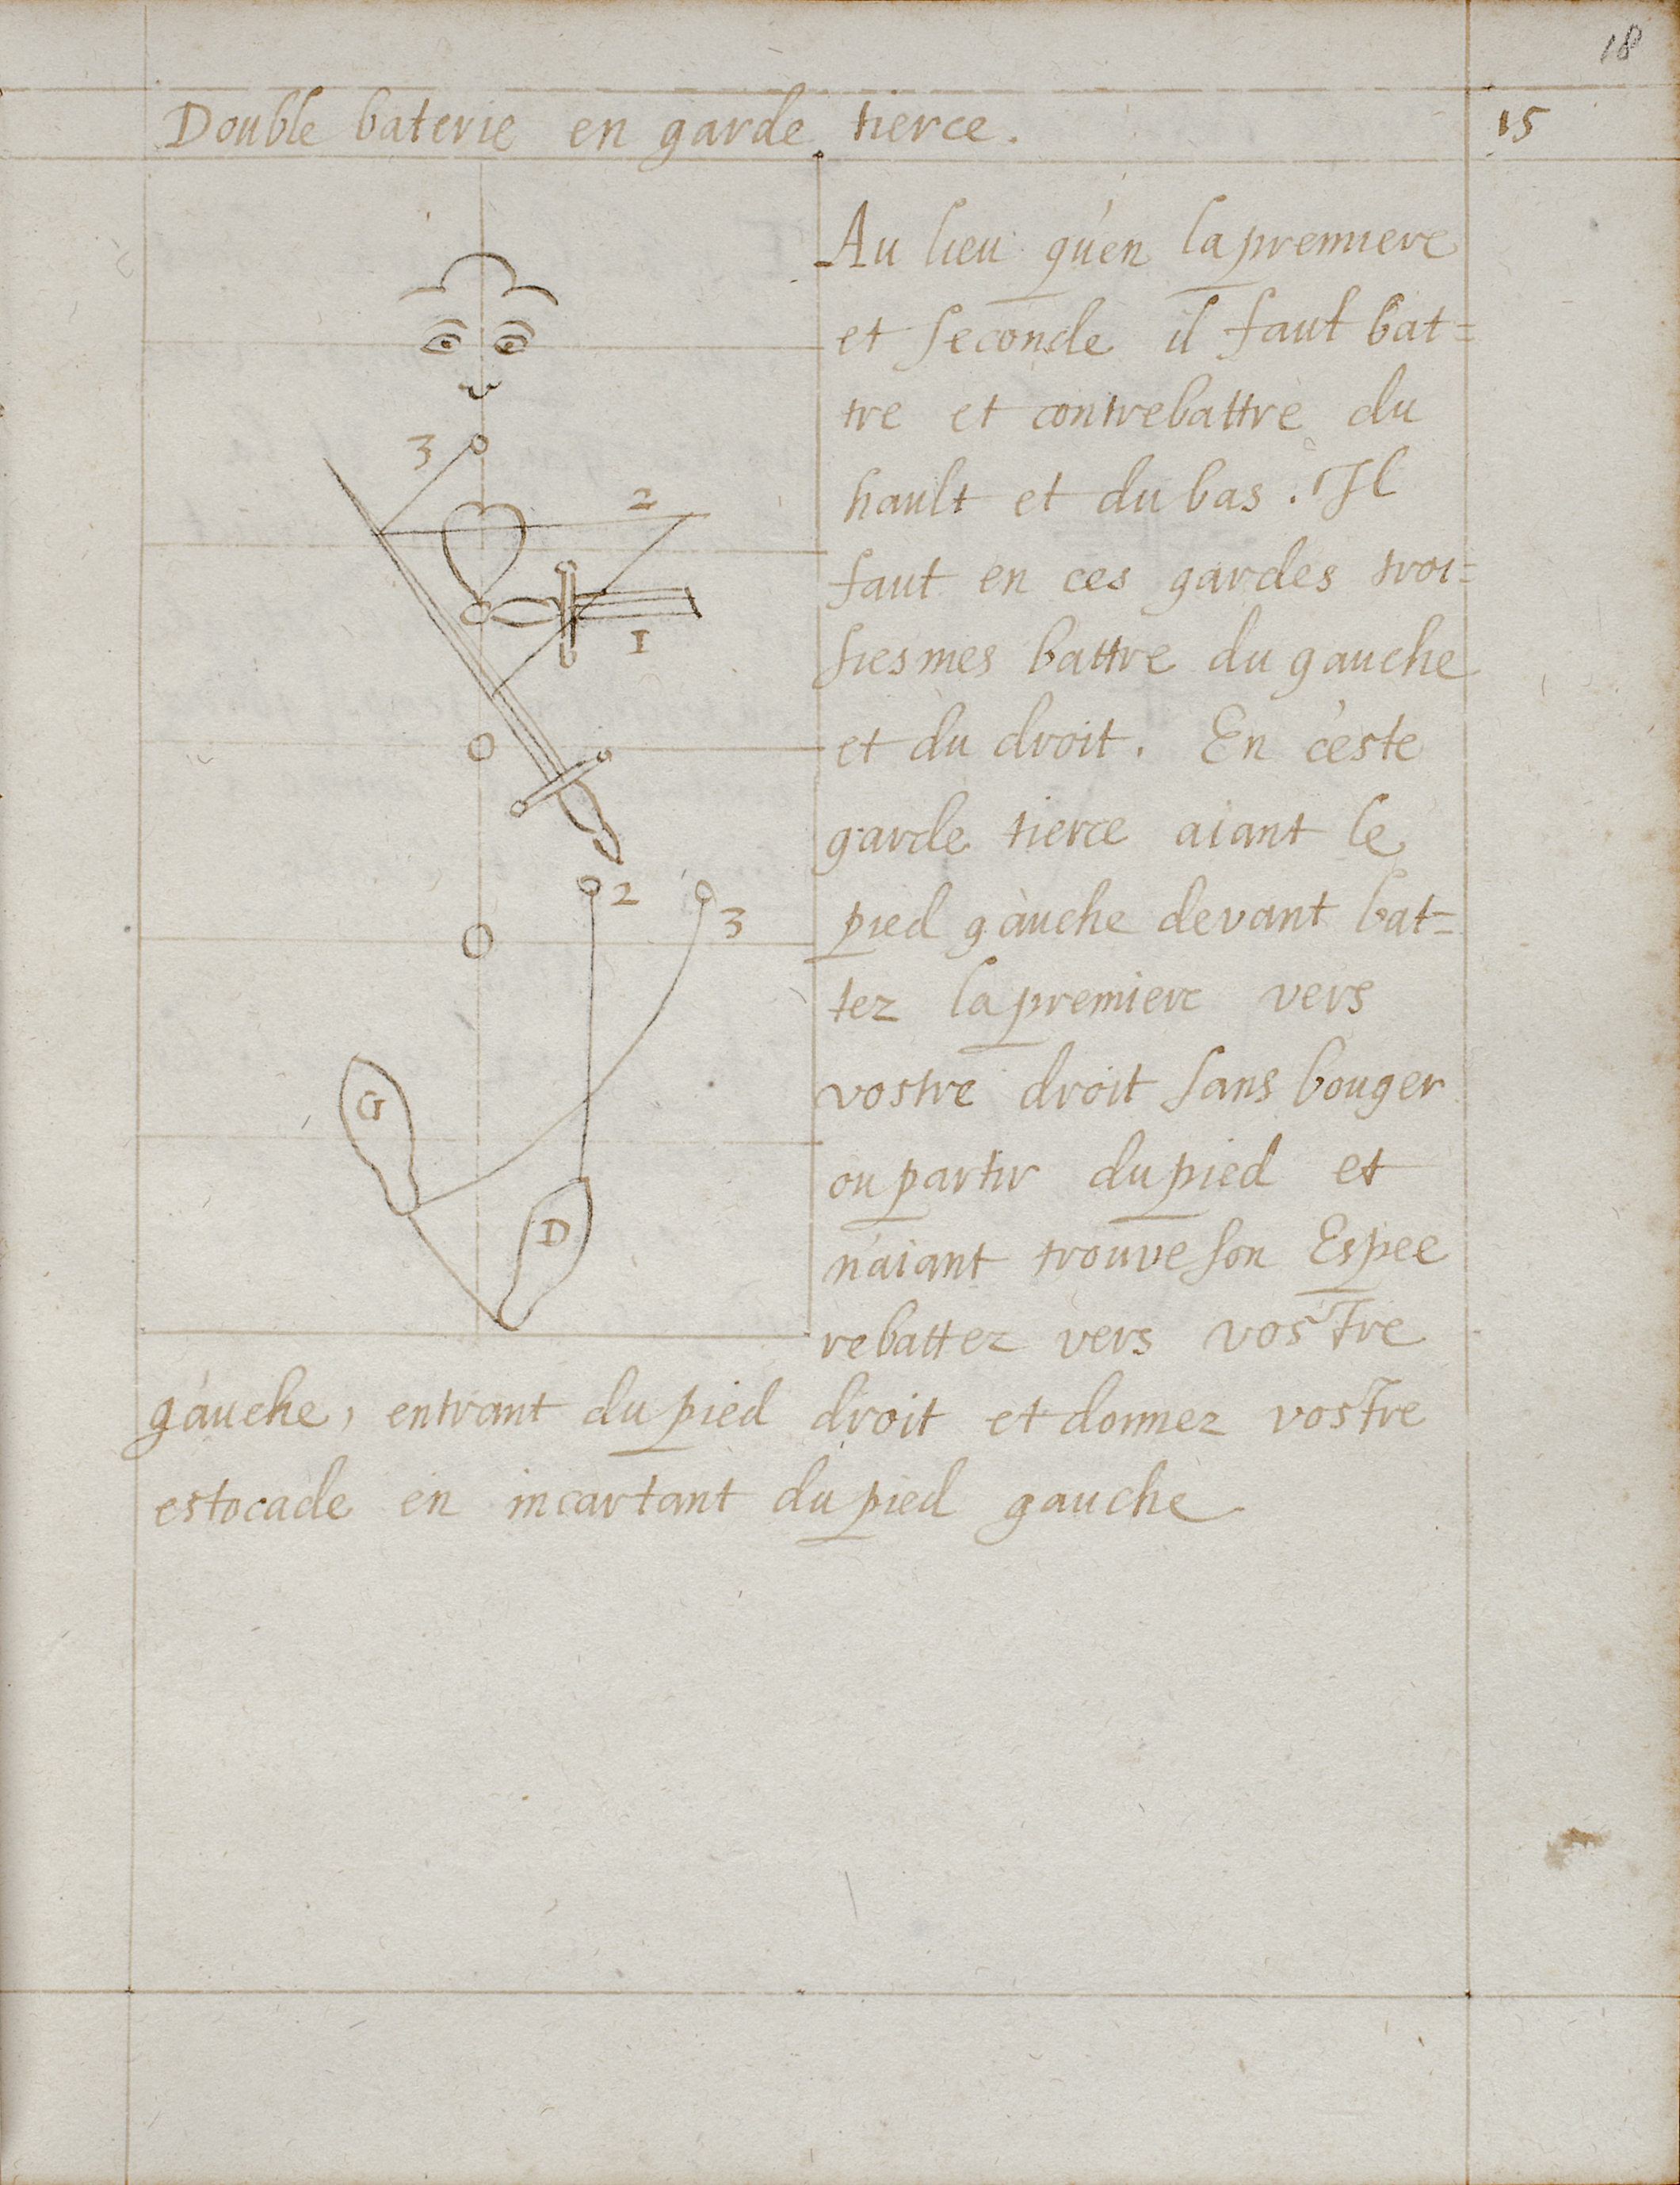 18
Double baterie en garde tierce.
15
Au lieu qu'en la premiere
et seconde il faut bat=
tre et contrebattre du
hault et du bas. Il
faut en ces gardes troi=
siesmes battre du gauche
et du droit. En ceste
garde tierce aiant le
pied gauche devant bat=
tez la premiere vers
vostre droit sans bouger
ou partir du pied et
n'aiant trouve son Espee
rebattez vers vostre
gauche, entrant du pied droit et donnez vostre
estocade en incartant du pied gauche
3
2
1
2
3
G
D